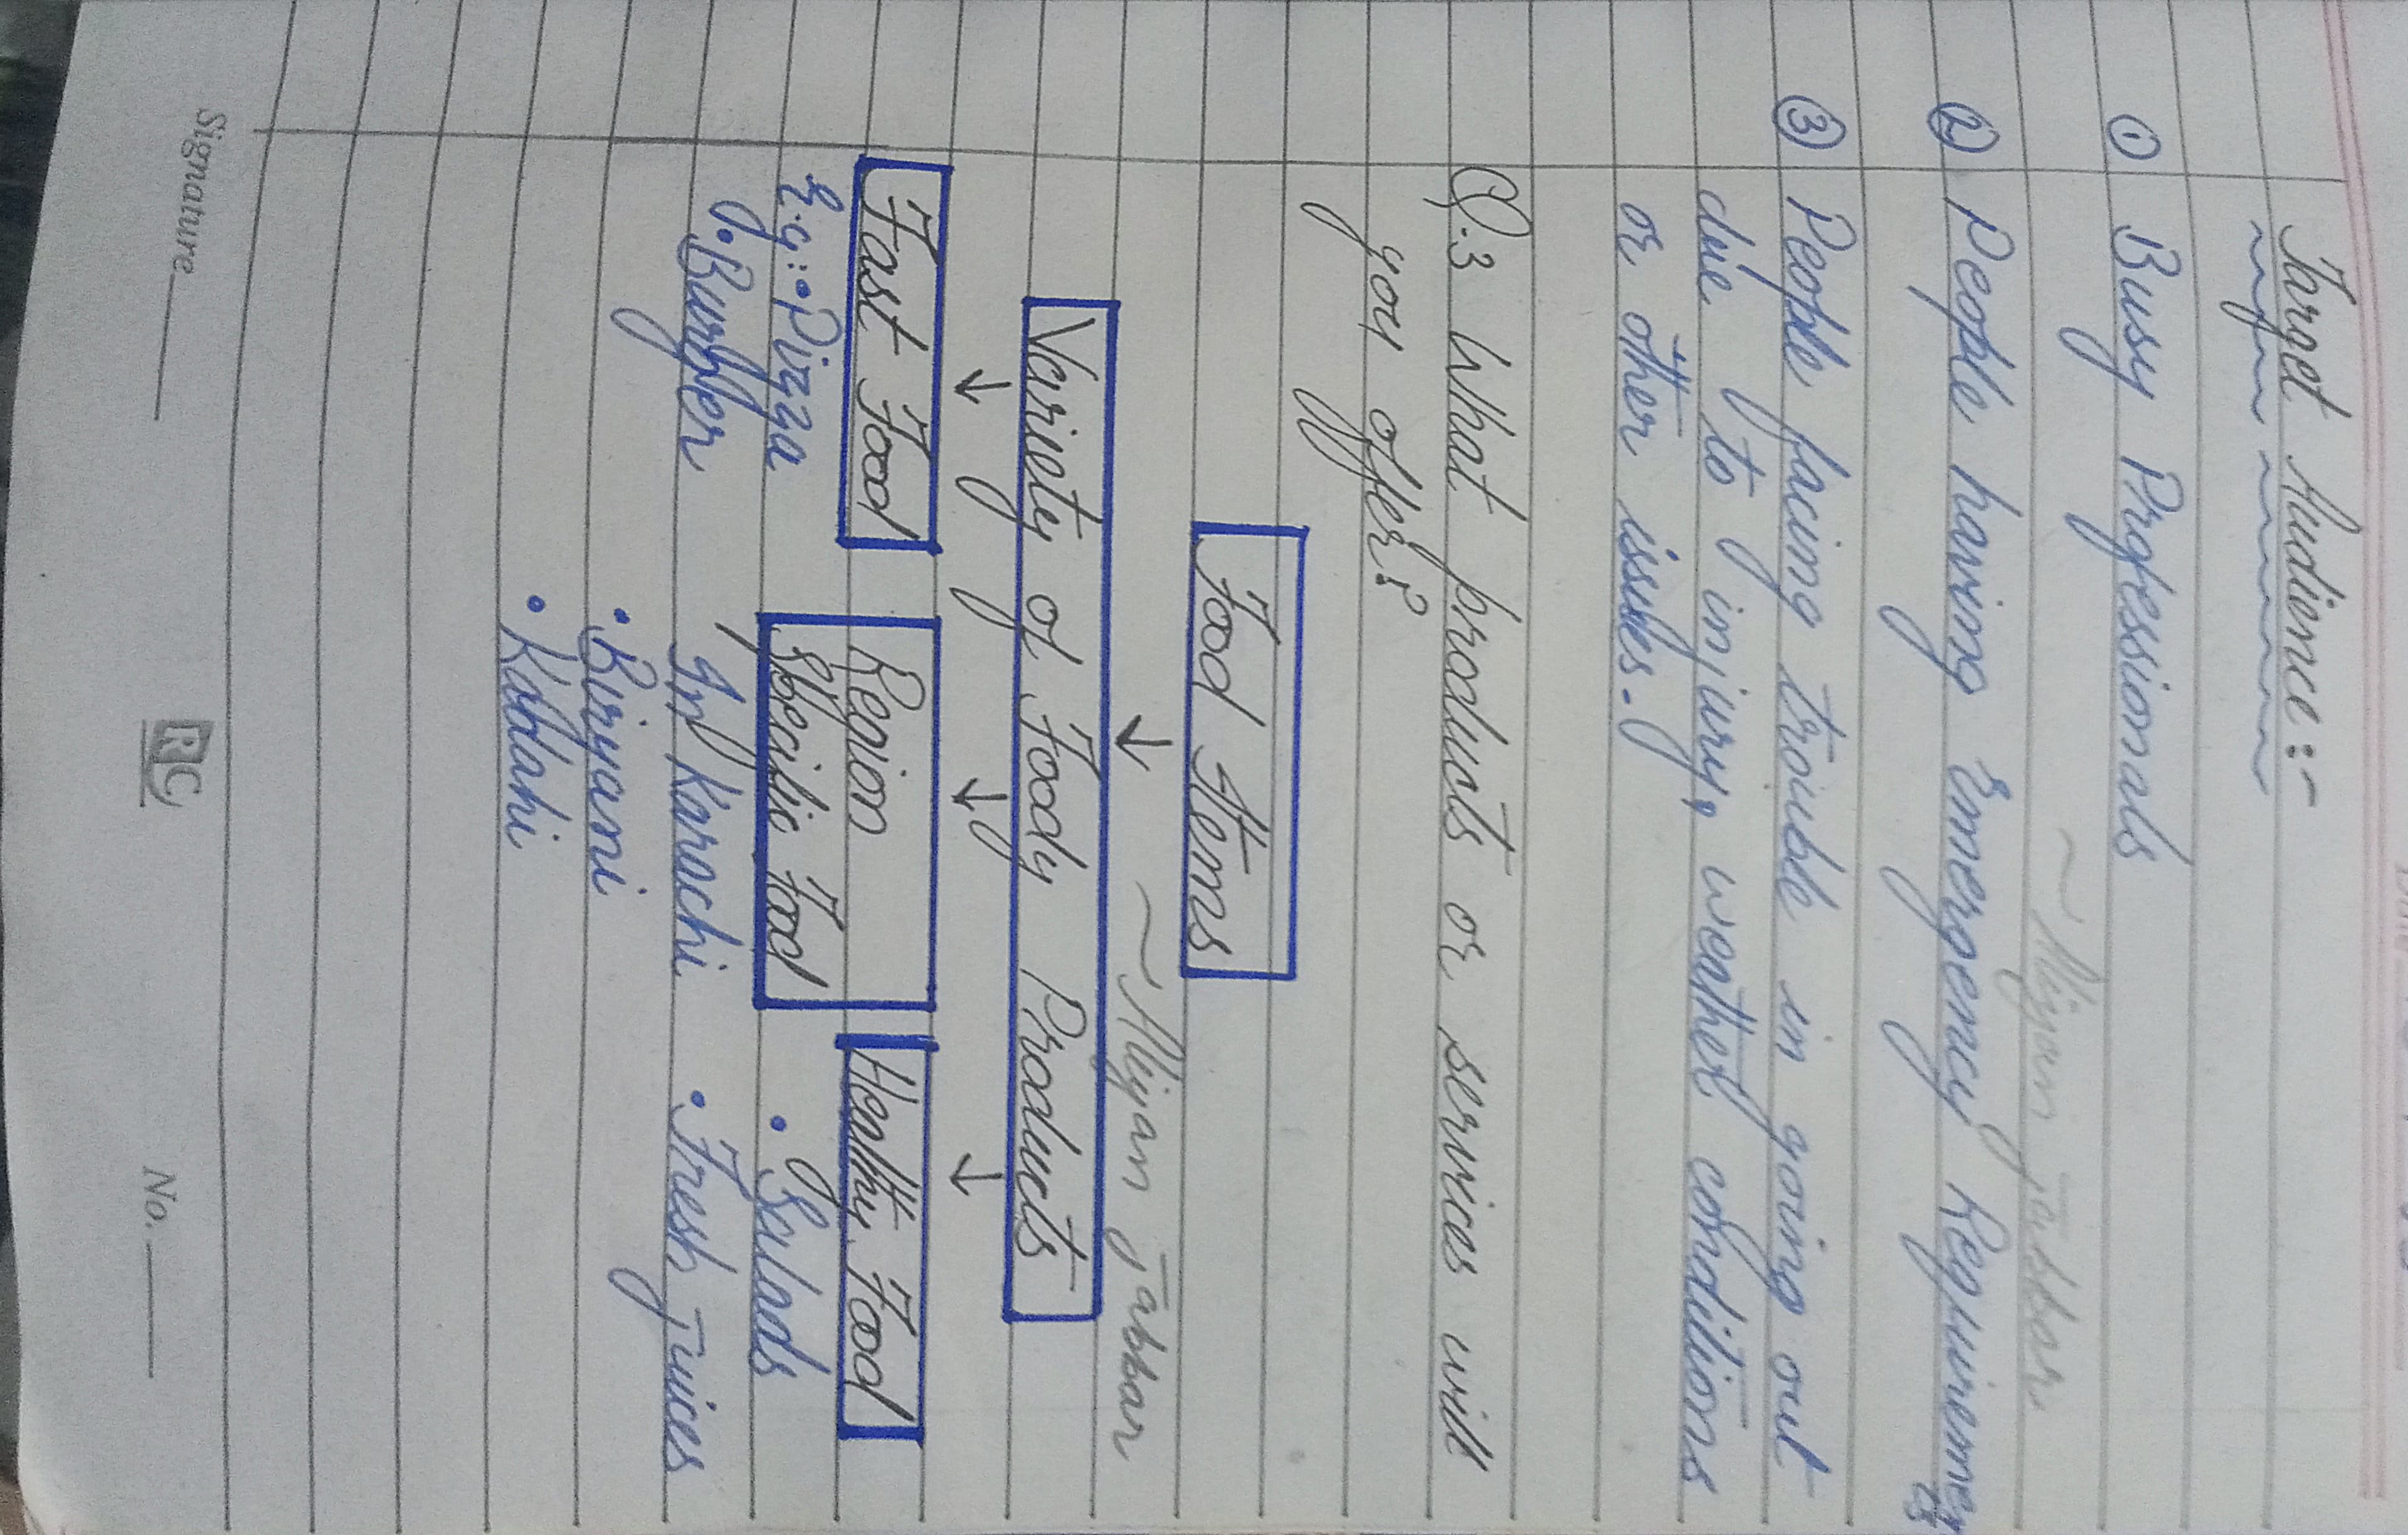 Target Audience:-
① Busy Professionals
~ Aliyan Jabbar
② People having Emergency Requirements
③ People facing trouble in going out
due to injury, weather conditions
or other issues.
Q.3 What products or services will
you offer?
Food Items
↓
~ Aliyan Jabbar
Variety of Foody Products
↓ ↓ ↓
Fast Food Region Healthy Food
Specific Food
E.g: • Pizza • Salads
• Burger In Karachi • Fresh juices
• Biryani
• Kadahi
Signature RC No.